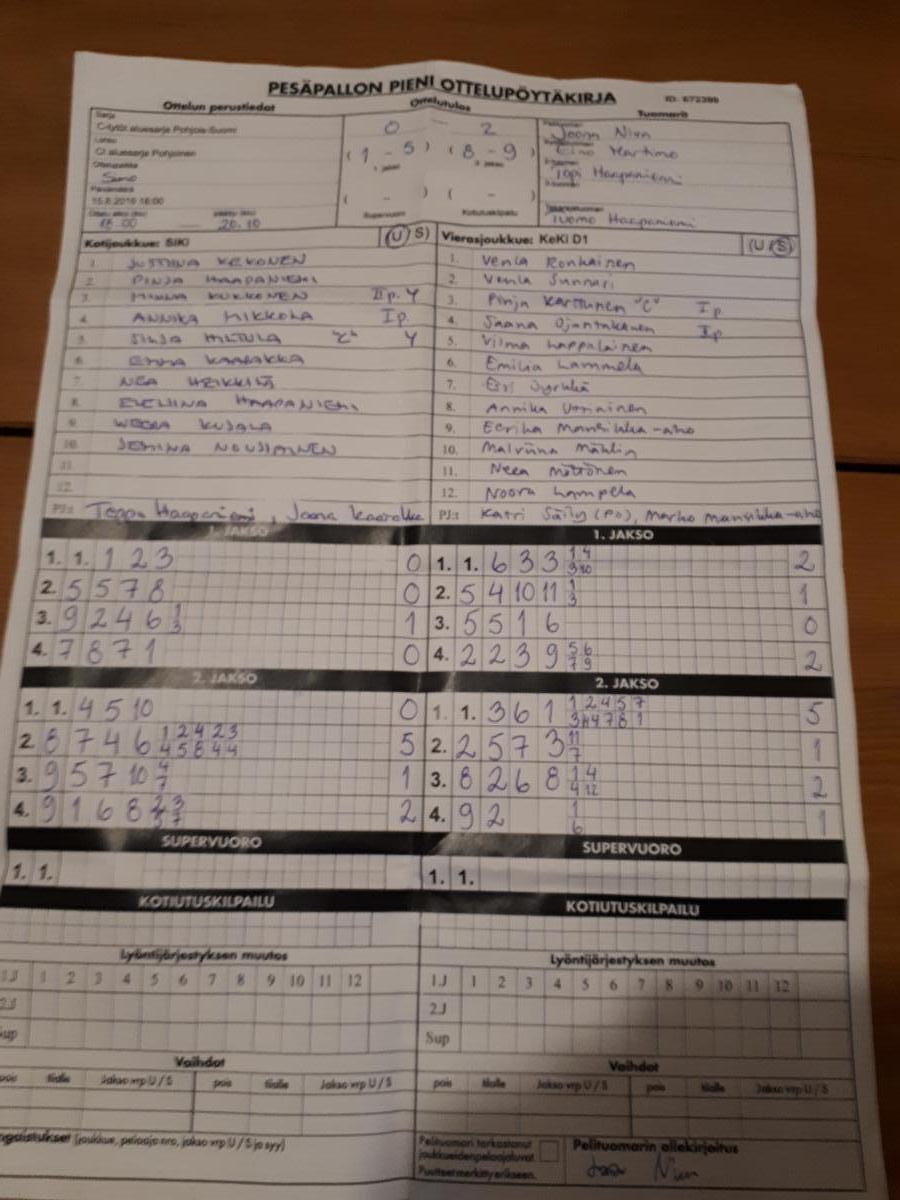 PESÄPALLON PIENI OTTELUPÖYTÄKIRJA
ID: 672399
Ottelun perustiedot
Ottelutulos
Tuomarit
Sarja
C-tytöt aluesarja Pohjois-Suomi
Lohko
C aluesarja Pohjoinen
Ottelupaikka
Simo
Päivämäärä
15.8.2019 18:00
18.00 20.10
0 - 2
(1 - 5) (8 - 9)
1. jakso 2. jakso
( - ) ( - )
Supervuoro Kotiutuskilpailu
Joona Niva
Eino Martimo
Topi Haapaniemi
Tuomo Haapaniemi
Kotijoukkue: SiKi (U/S)
1. JUSTIINA KEKONEN
2. PINJA HAAPANIEMI
3. MINNA KUKKONEN IIp. Y
4. ANNIKA MIKKOLA Ip.
5. SINJA MILTULA "C" Y
6. EMMA KAARAKKA
7. NEA HEIKKILÄ
8. EVELIINA HAAPANIEMI
9. WEERA KUJALA
10. JEMINA NOUSIAINEN
11.
12.
PJ:t Teppo Haapaniemi, Joona Kaarakka
Vierasjoukkue: KeKi D1 (U/S)
1. Venla Ronkainen
2. Venla Sunnari
3. Pinja Karttunen "C" Ip.
4. Saana Ojantakanen Ip.
5. Vilma Lappalainen
6. Emilia Lammela
7. Essi Jyrkkä
8. Annika Urriainen
9. Eerika Mansikka-aho
10. Malviina Mählin
11. Neea Mötrönen
12. Noora Lampela
PJ:t Katri Säily (PO), Marko Mansikka-aho
1. JAKSO
1. 1. 1 2 3 0
2. 5 5 7 8 0
3. 9 2 4 6 1/3 1
4. 7 8 7 1 0
1. JAKSO
1. 1. 6 3 3 1/3 4/10 2
2. 5 4 10 11 1/3 1
3. 5 5 1 6 0
4. 2 2 3 9 5/7 6/9 2
2. JAKSO
1. 1. 4 5 10 0
2. 8 7 4 6 1/4 2/5 4/8 2/4 3/4 5
3. 9 5 7 10 4/7 1
4. 9 1 6 8 2/3 3/7 2
2. JAKSO
1. 1. 3 6 1 1/3 2/4 4/7 5/8 7/1 5
2. 2 5 7 3 11/7 1
3. 8 2 6 8 1/4 4/12 2
4. 9 2 1/6 1
SUPERVUORO
1. 1.
SUPERVUORO
1. 1.
KOTIUTUSKILPAILU
KOTIUTUSKILPAILU
Lyöntijärjestyksen muutos
1.J 1 2 3 4 5 6 7 8 9 10 11 12
2.J
Sup
Lyöntijärjestyksen muutos
1.J 1 2 3 4 5 6 7 8 9 10 11 12
2.J
Sup
Vaihdot
pois tilalle Jakso vrp U / S pois tilalle Jakso vrp U / S
Vaihdot
pois tilalle Jakso vrp U / S pois tilalle Jakso vrp U / S
(joukkue, pelaaja nro, jakso vrp U / S ja syy)
Pelituomari tarkastanut
joukkueidenpelaajaluvat.
Puutteet merkitty erikseen.
Pelituomarin allekirjoitus